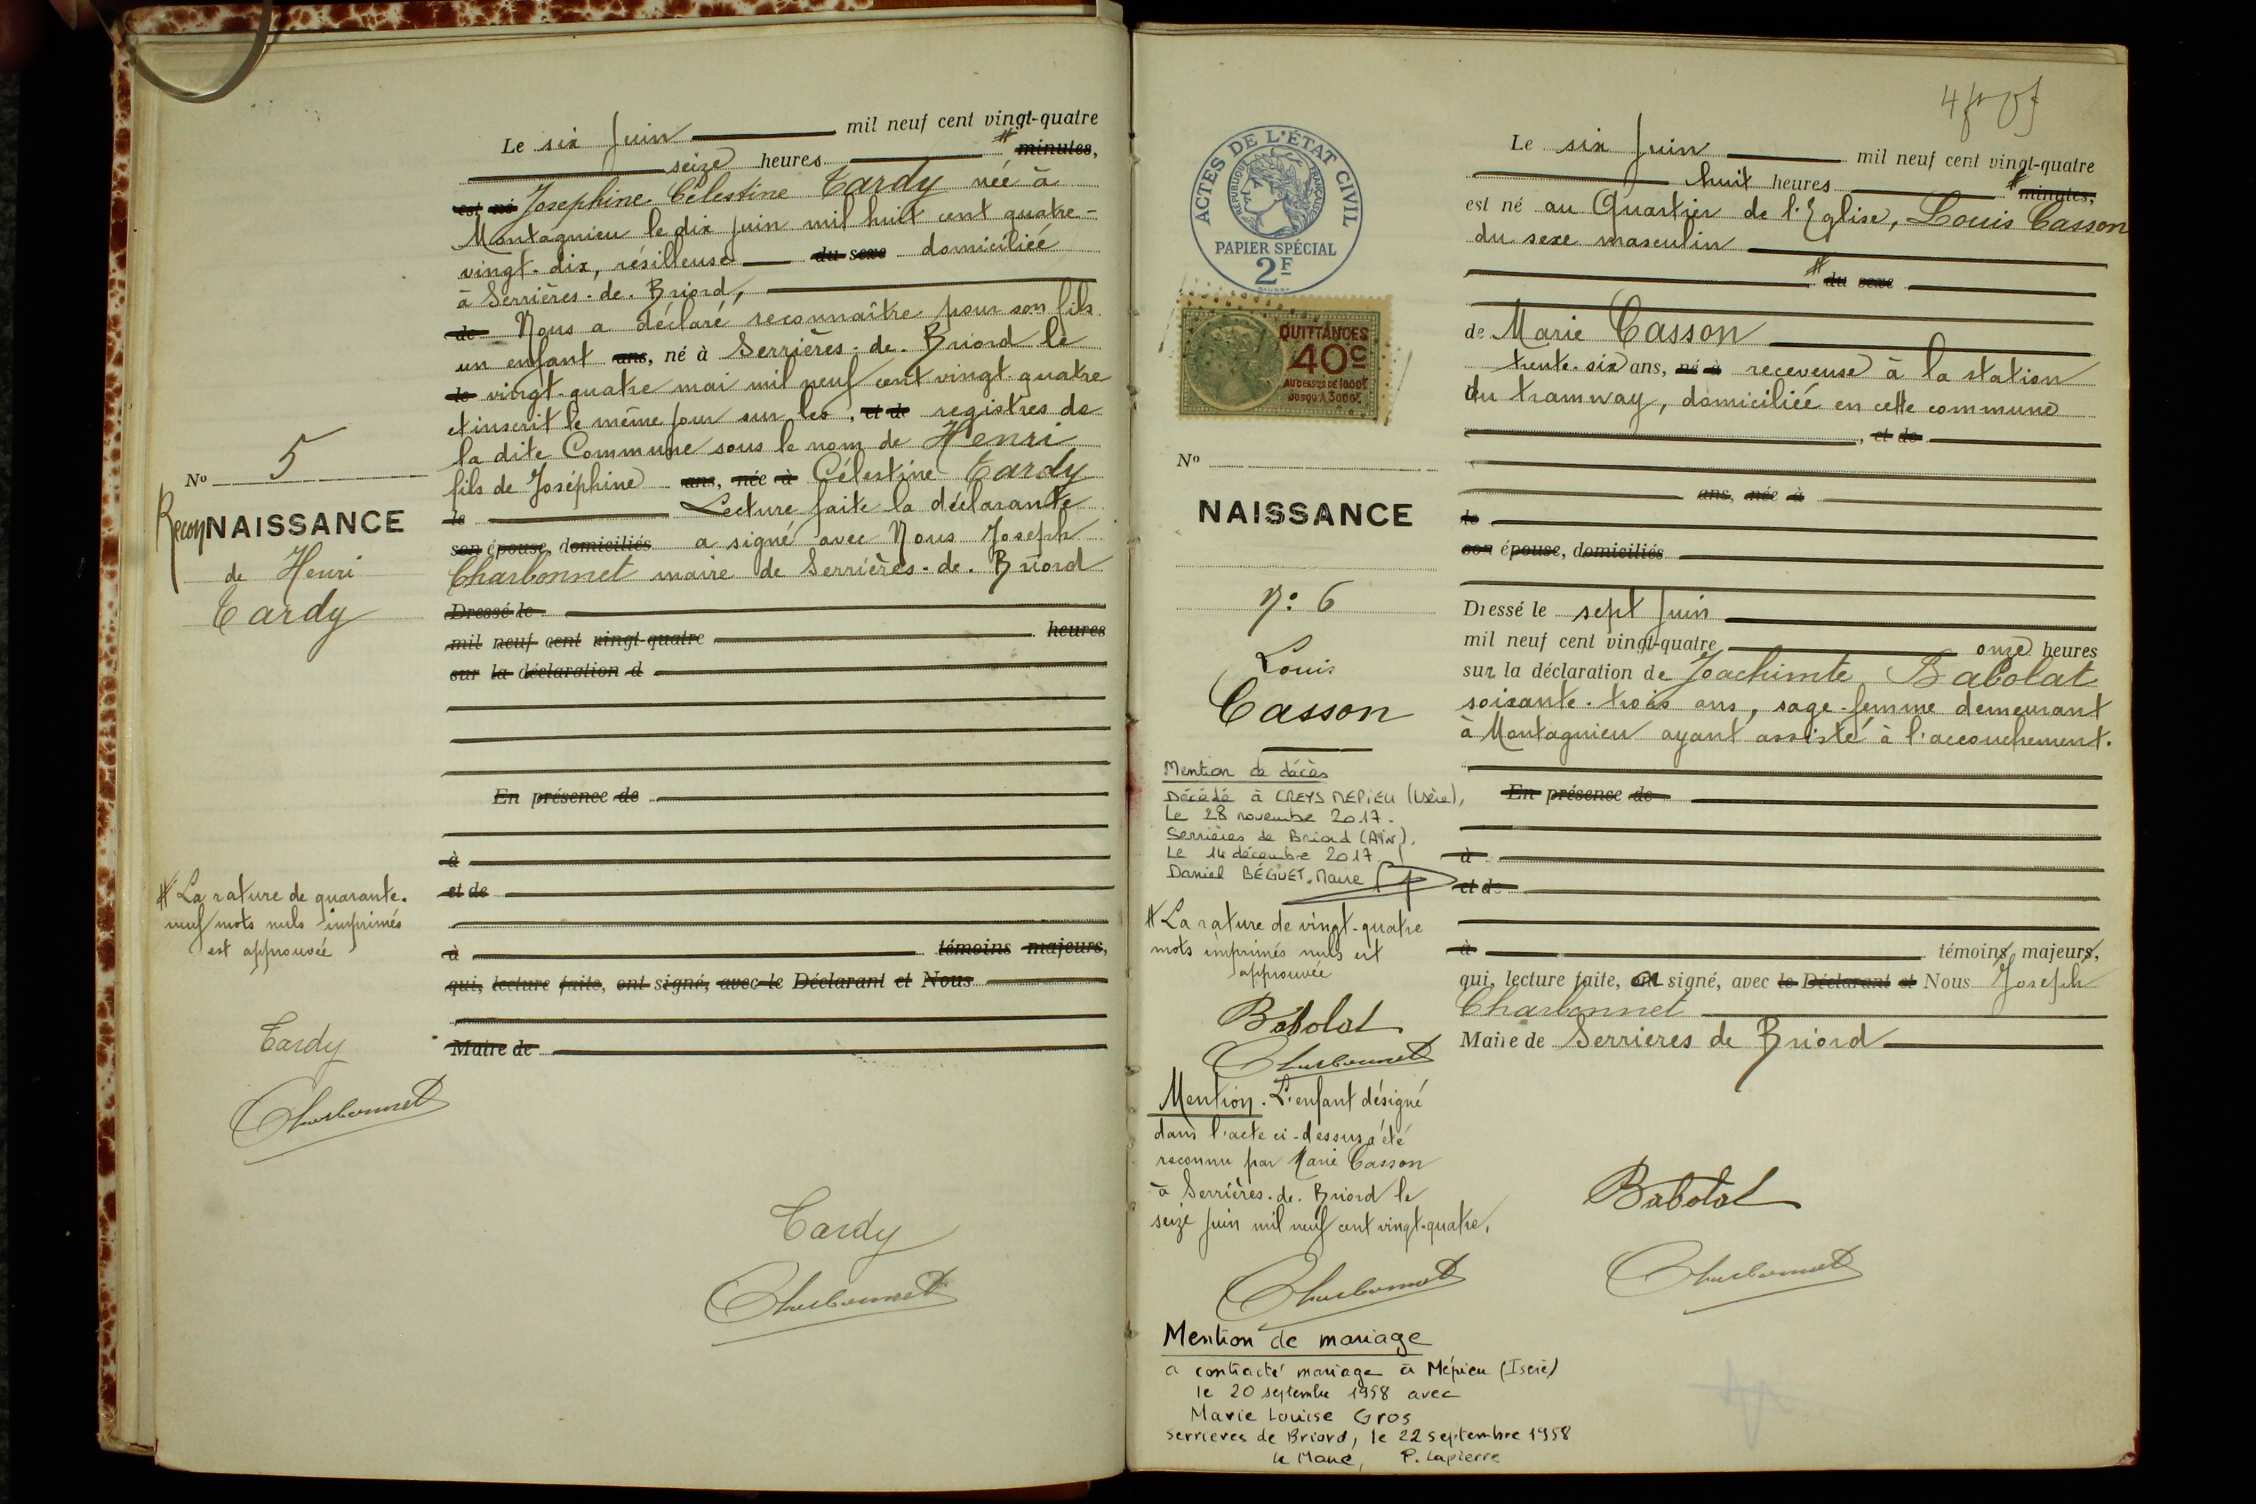 Le six Juin mil neuf cent vingt-quatre
seize heures # minutes,
est né Joséphine Célestine Tardy née à
Montagnieu le dix Juin mil huit cent quatre-
vingt-dix, résilleuse du sexe domiciliée
à Serrières-de-Briord,
de Nous a déclaré reconnaître pour son fils
un enfant ans, né à Serrières-de-Briord le
le vingt quatre mai mil neuf cent vingt-quatre
et inscrit le même jour sur les, et de registres de
la dite Commune sous le nom de Henri
fils de Joséphine ans, née à Célestine Tardy
le Lecture faite la déclarante
son épouse, domiciliés a signé avec Nous Joseph
Charbonnet maire de Serrières-de-Briord
Dressé le
mil neuf cent vingt-quatre heures
sur la déclaration d
En présence de
à
et de
à témoins majeurs,
qui, lecture faite, ont signé, avec le Déclarant et Nous
Maire de
No 5
ReconNAISSANCE
de Henri
Tardy
# La rature de quarante-
neuf mots nuls imprimés
est approuvée
Tardy
Charbonnet
Tardy
Charbonnet
ACTES DE L'ÉTAT CIVIL
RÉPUBLIQUE FRANÇAISE
PAPIER SPÉCIAL
2F
QUITTANCES
40c
AU DESSUS DE 1000F
JUSQU'A 3000F
No
NAISSANCE
No: 6
Louis
Casson
Mention de décès
Décédé à CREYS MEPIEU (Isère),
Le 28 novembre 2017.
Serrières de Briord (AIN),
Le 14 décembre 2017
Daniel BÉGUET, Maire
# La rature de vingt-quatre
mots imprimés nuls est
approuvée
Babolat
Charbonnet
Mention. L'enfant désigné
dans l'acte ci-dessus a été
reconnu par Marie Casson
à Serrières-de-Briord le
seize Juin mil neuf cent vingt-quatre,
Charbonnet
Mention de mariage
a contracté mariage à Mépieu (Isère)
le 20 septembre 1958 avec
Marie Louise Gros
serrieres de Briord, le 22 septembre 1958
le Maire, P. Lapierre
Le six Juin mil neuf cent vingt-quatre
huit heures # minutes,
est né au Quartier de l'Eglise, Louis Casson
du sexe masculin
# du sexe
de Marie Casson
trente-six ans, né à receveuse à la station
du tramway, domiciliée en cette commune
, et de
ans, née à
le
son épouse, domiciliés
Dressé le sept Juin
mil neuf cent vingt-quatre onze heures
sur la déclaration de Joachimte Babolat
soixante-trois ans, sage-femme demeurant
à Montagnieu ayant assisté à l'accouchement.
En présence de
à
et de
à témoins majeurs,
qui, lecture faite, a signé, avec le Déclarant et Nous Joseph
Charbonnet
Maire de Serrieres de Briord
Babolat
Charbonnet